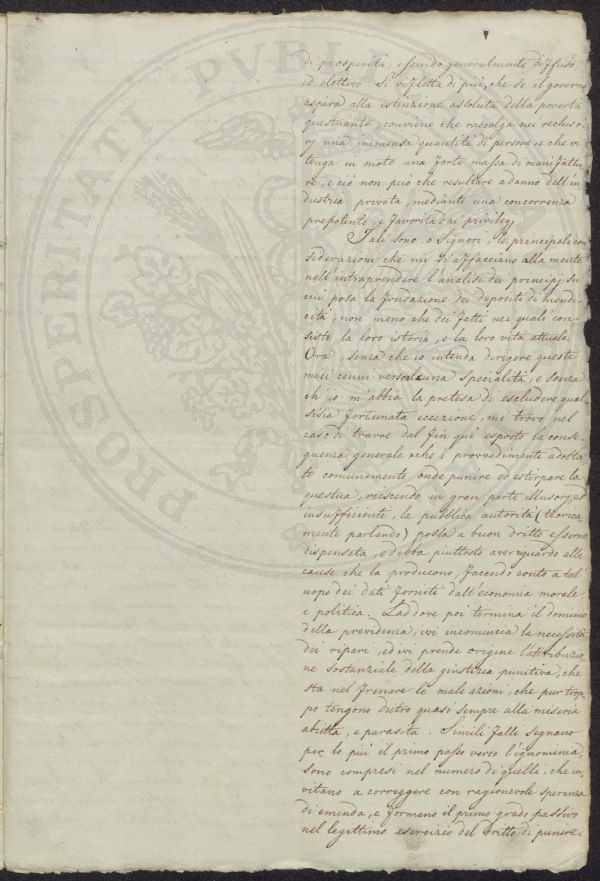 di prosperità, essendo generalmente diffuso,
ed elettivo. Si rifletta di più, che se il governo
aspira alla estinzione assoluta della povertà
questuante, conviene che raccolga nei recluso-
rj una immensa quantità di persone, e che vi
tenga in moto una forte massa di manifattu-
re, e ciò non può che resultare a danno dell'in
dustria privata, mediante una concorrenza
prepotente, e favorita dai privilegj.
Tali sono, o Signori, le principali con
siderazioni che mi si affacciano alla mente
nell'intraprendere l'analisi dei principj, su
cui posa la fondazione dei depositi di mendi-
cità, non meno che dei fatti nei quali con-
siste la loro istoria, e la loro vita attuale.
Ora, senza che io intenda dirigere questi
miei cenni verso alcuna specialità, e senza
ch'io m'abbia la pretesa di escludere qual
sisia fortunata eccezione, mi trovo nel
caso di trarre dal fin quì esposto la conse-
guenza generale che i provvedimenti adotta
ti comunemente onde punire ed estirpare la
questua, riescendo in gran parte illusorj, ed
insufficienti, la pubblica autorità (teorica-
mente parlando) possa a buon dritto esserne
dispensata, e debba piuttosto aver riguardo alle
cause che la producono, facendo conto a tal'
uopo dei dati forniti dall'economia morale
e politica. Laddove poi termina il dominio
della previdenza, ivi incomincia la necessità
dei ripari, ed ivi prende origine l'attribuzio
ne sostanziale della giustizia punitiva, che
sta nel frenare le male azioni, che pur trop
po tengono dietro quasi sempre alla miseria
abietta, e parasita. Simili falli segnano
per lo più il primo passo verso l'ignominia,
sono compresi nel numero di quelli, che in,
vitano a correggere con ragionevole speranza
di emenda, e formano il primo grado passivo
nel legittimo esercizio del dritto di punire.
PROSPERITATI PVBLI